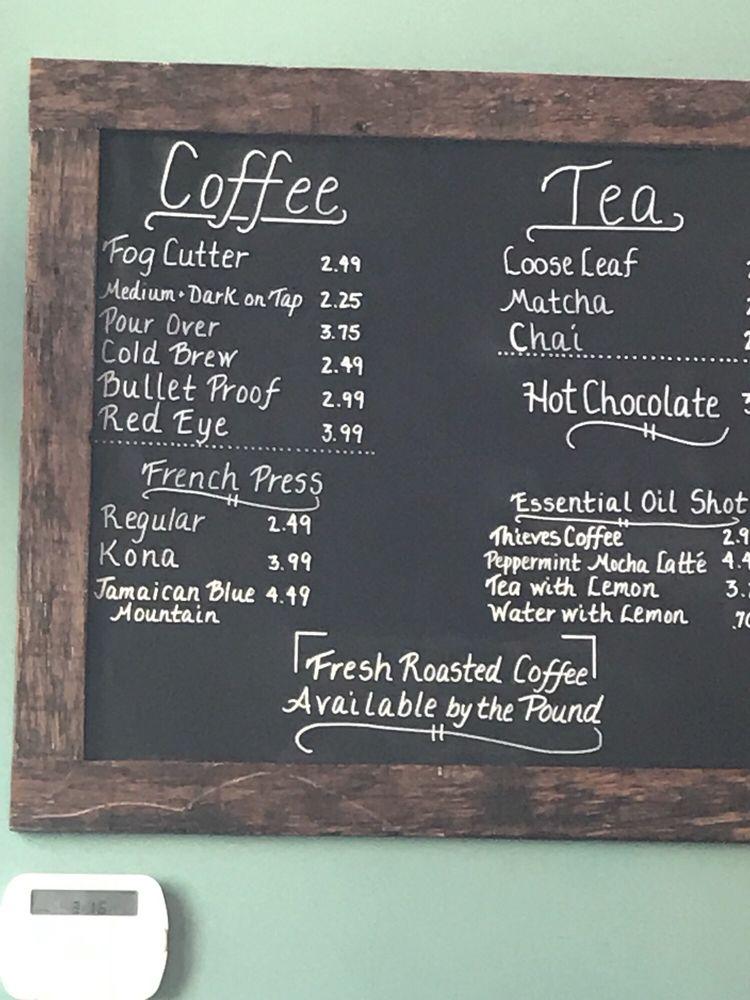 Coffee
Fog Cutter 2.49
Medium • Dark on Tap 2.25
Pour Over 3.75
Cold Brew 2.49
Bullet Proof 2.99
Red Eye 3.99
French Press
Regular 2.49
Kona 3.99
Jamaican Blue 4.49
Mountain
Tea
Loose Leaf
Matcha
Chai
Hot Chocolate
Essential Oil Shot
Thieves Coffee 2.9
Peppermint Mocha Latté 4.4
Tea with Lemon 3.
Water with Lemon .70
Fresh Roasted Coffee
Available by the Pound